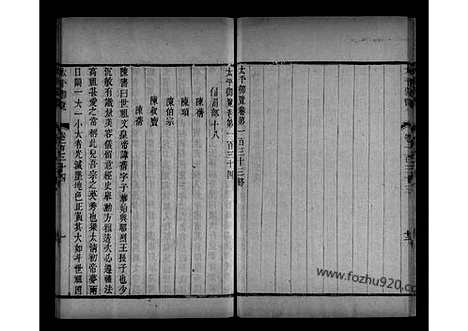 太平御覽卷第一百三十三終
太平御覽卷第一百三十四
偏霸部十八
陳蒨
陳伯宗
陳頊
陳叔寶
陳蒨
陳書曰世祖文皇帝諱蒨字子華始興昭烈王長子也少
沉敏有識量美容儀留意經史舉動方雅造次必遵禮法
高祖甚愛之常稱此兒吾宗之英秀也梁太清初帝夢兩
日鬬一大一小大者光滅墜地色正黃其大如斗世祖因
www.fozhu920.com